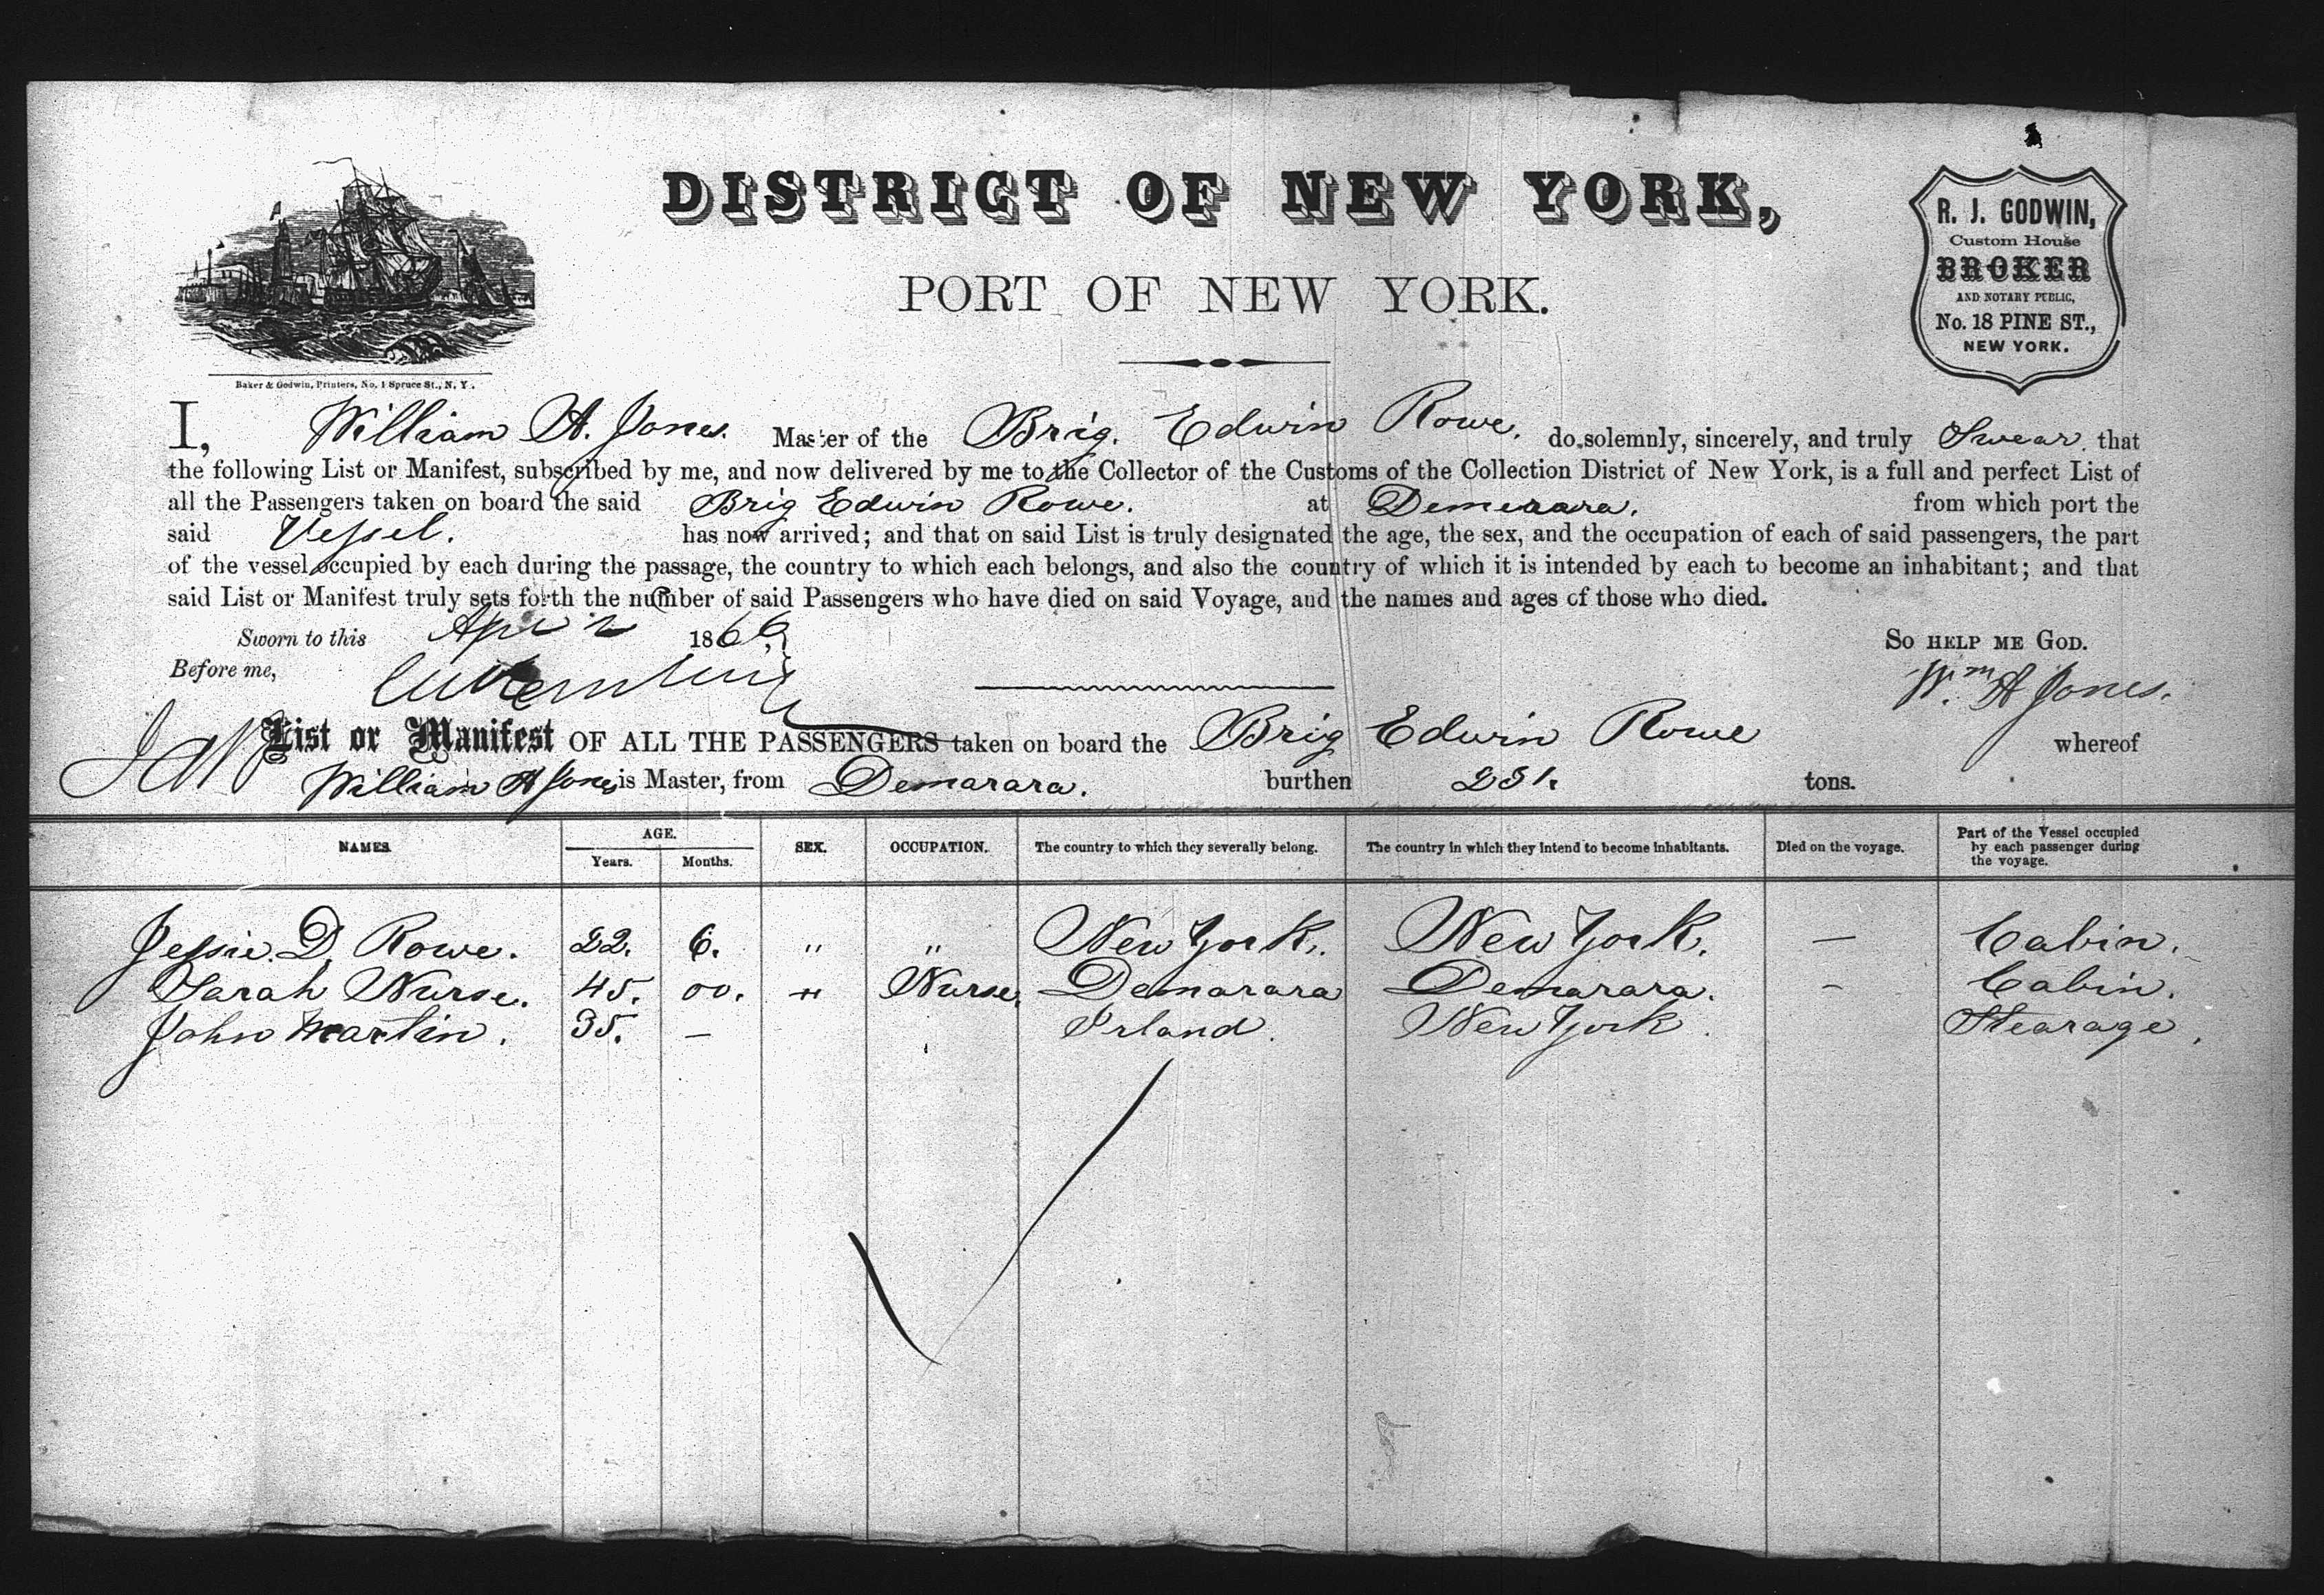 DISTRICT OF NEW YORK,
PORT OF NEW YORK.
R. J. GODWIN,
Custom House
BROKER
AND NOTARY PUBLIC,
No. 18 PINE ST.,
NEW YORK.
Baker & Godwin, Printers, No. 1 Spruce St., N. Y.
I, William A. Jones. Master of the Brig. Edwin Rowe. do solemnly, sincerely, and truly Swear that
the following List or Manifest, subscribed by me, and now delivered by me to the Collector of the Customs of the Collection District of New York, is a full and perfect List of
all the Passengers taken on board the said Brig Edwin Rowe. at Demerara. from which port the
said Vessel. has now arrived; and that on said List is truly designated the age, the sex, and the occupation of each of said passengers, the part
of the vessel occupied by each during the passage, the country to which each belongs, and also the country of which it is intended by each to become an inhabitant; and that
said List or Manifest truly sets forth the number of said Passengers who have died on said Voyage, and the names and ages of those who died.
Sworn to this 1866 So HELP ME GOD.
Before me, Wm A Jones.
List or Manifest OF ALL THE PASSENGERS taken on board the Brig Edwin Rowe whereof
William A Jones is Master, from Demarara. burthen tons.
NAMES. AGE. Years. Months. SEX. OCCUPATION. The country to which they severally belong. The country in which they intend to become inhabitants. Died on the voyage. Part of the Vessel occupied by each passenger during the voyage.
Jessie. D. Rowe. 22. 6. " " New York. New York. — Cabin.
Sarah Nurse. 45. 00. Nurse, Demarara Demarara. - Cabin.
John Martin. 35. — Irland. New York. Stearage,